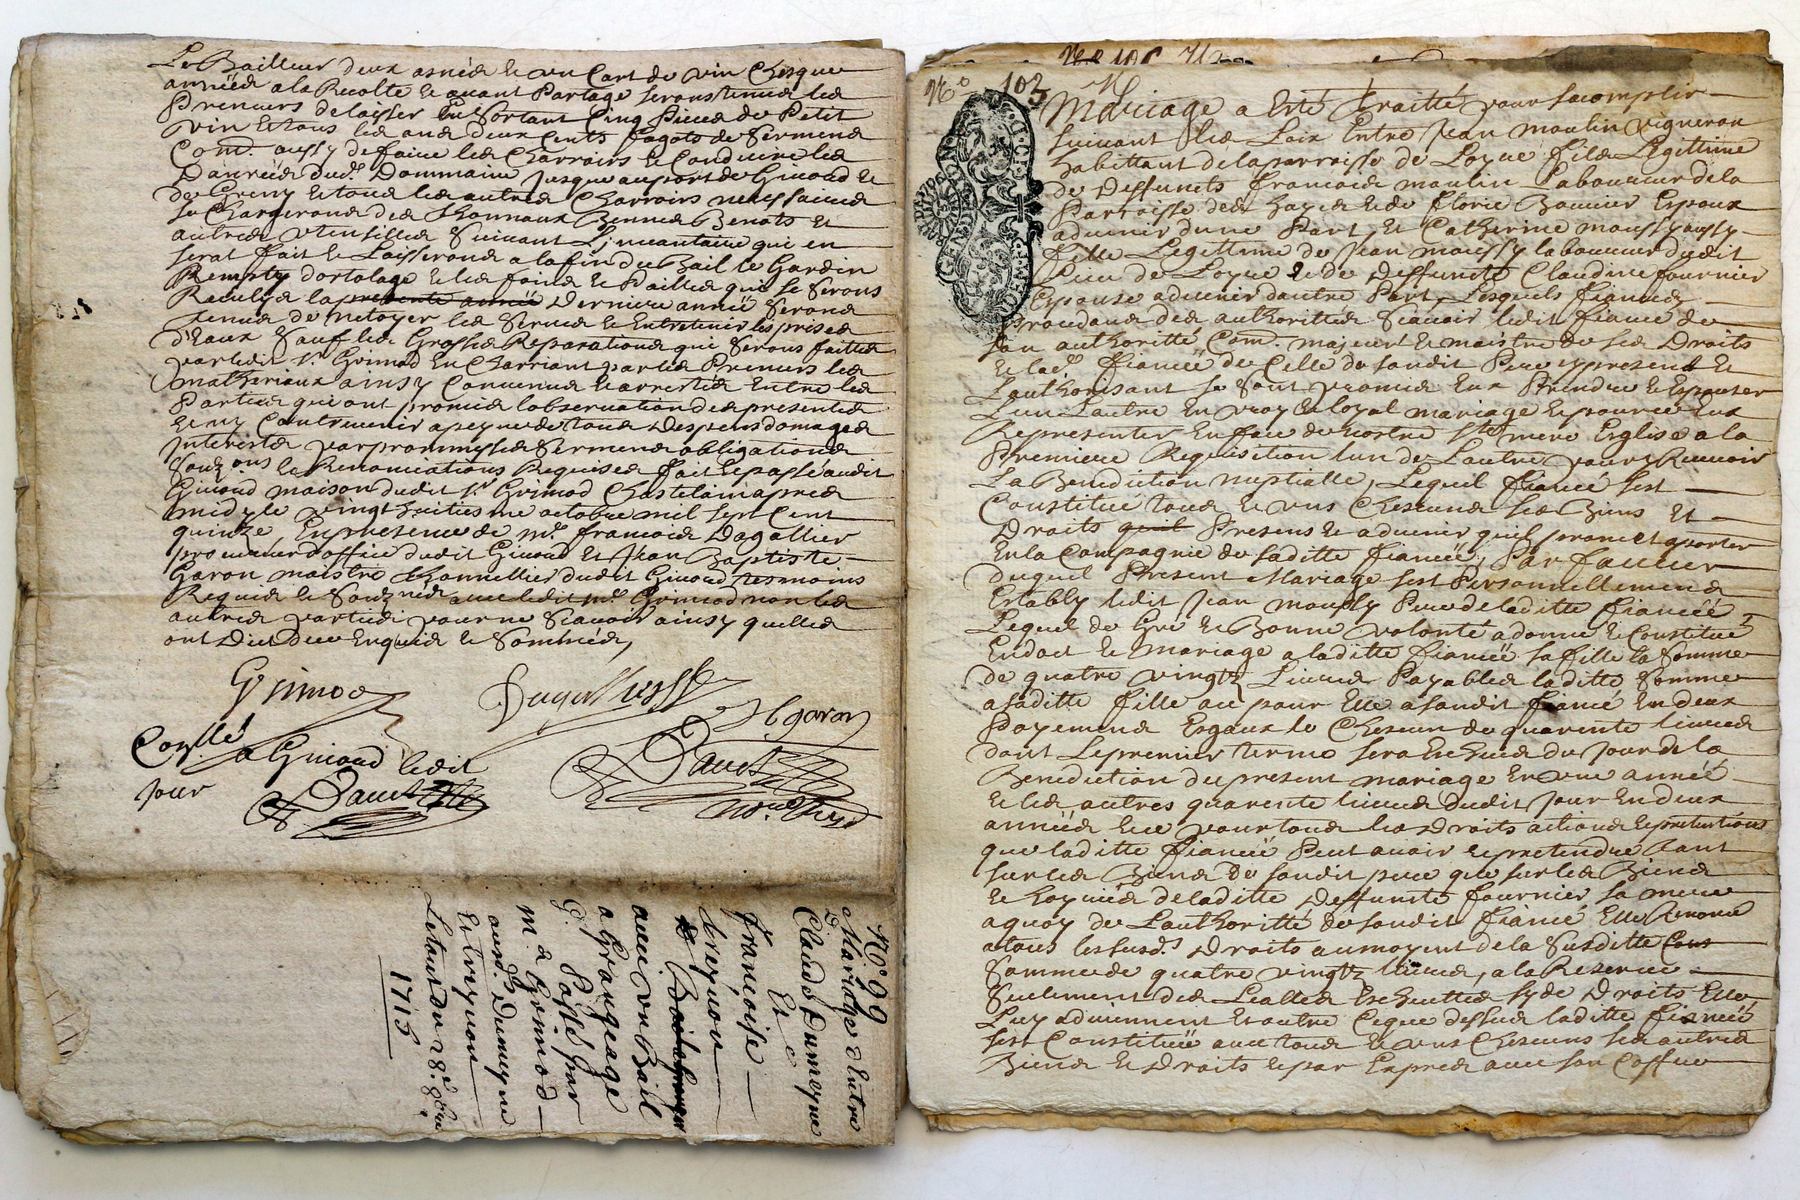 Le Bailleur deux asnées et un Cart de vin Chesque
année a la Recolte et avant Partage seront tenus les
Preneurs de laisser En Sortant Cinq Pieces de Petit
vin Et tous les ans deux Cents fagots de Serment
Com aussy de faire les Charrois et Conduire les
Danrées dud. Dommaine jusque au port de Givord Et
de Greny Et tous les autres Charrois necessaires
Se Chargeront des thonnaux Bennes Benots Et
autres Utensilles Suivant L'inventaire qui en
serat fait Et Laisseront a la fin du Bail le Gardin
Remply d'ortolage Et les foins et Pailles qui se seront
Recully la presente année derniere année seront
tenus de netoyer les serves et Entretenir les prises
d'Eaux Sauf les Grosses Reparations qui seront faittes
par ledit Sr. Grimod En Charriant par les Preneurs les
matheriaux ainsy Convenus et arrestés Entre les
Parties qui ont promis l'observation des presentes
et ny Contrevenir a peyne de tous despens domages
Interests par prommesses serment obligations
Souz. ons la Renonciations Requises fait et passé audit
Givord maison dudit Sr. Grimod Chastelain apres
midy le vingt huitiesme octobre mil sept Cent
quinze, En presence de Me. francois Dagallier
procureur d'office dudit Givord Et Jean Baptiste
Garon maistre thonnellier dudit Givord tesmoins
Requis et Souz.nés avec ledit Me. Grimod non les
autres parties pour ne Scavoir ainsy quelles
ont dit de ce Enquis et Sommées,
Grimod
Hgaron
a Givord ledit
jour
No. 99
Mariage d'Entre
Claude Dumeyne
Et
francoise
avec un Bail
a Grangeage
Passé par
M. a Grimod
aud. Dumeyne
Et treynon
Le tout du 28e. 8bre
1715
No. 103
Mariage a Esté traitté pour sacomplir
suivant les Loix Entre Jean moulin vigneron
habittant de la parroisse de Loyre fils Legittime
de Deffuncts francois moulin Laboureur de la
Parroisse des hayes et de florie Bonnier Espoux
advenir d'une Part, Et Catherine moussy aussy
fille Legittime de Jean moussy laboureur dudit
Lieu de Loyre et de Deffuncte Claudine fournier
Espouse advenir d'autre Part, Lesquels fiancés
Procedans des authorittés Scavoir ledit fiancé de
son authoritté Com. majeur et maistre de ses Droits
et lad. fiancée de Celle de sondit Pere yci present Et
L'authorisant se sont promis Eux Prendre et Espouser
L'un L'autre En vray et loyal mariage et pource Eux
Representer En face de nostre Ste mere Esglise a la
Premiere Requisition l'un de L'autre pour y Recevoir
La Benediction nuptialle, Lequel fiancé sest
Constitué tous et uns Chescuns ses Biens Et
Droits quil Presens et advenir quil promet aporter
En la Compagnie de saditte fiancée, Par faveur
duquel Present Mariage sest Personnellement
Estably ledit Jean moussy Pere de laditte fiancée
Lequel de Gré et Bonne volonté a donné et Constitué
En dot et mariage a laditte fiancée sa fille la Somme
de quatre vingtz Livres Payables laditte Somme
a saditte fille ou pour Elle a sondit fiancé En deux
Payemens Esgaux de Chescun de quarente livres
dont Le premier terme sera Escheus du jour de la
Benediction du present mariage En une année
et les autres quarente livres dudit jour En deux
années Et ce pour tous les Droits actions et pretentions
que laditte fiancée Peut avoir et pretendre tant
sur les Biens de sondit pere que sur les Biens
et hoyries de laditte deffuncte fournier sa mere
a quoy de L'authoritté de sondit fiancé Elle Renonce
a tous les susds. Droits au moyent de la Susditte
Somme de quatre vingtz livres, a la Reserve
Seulement des Lealles Escheuttes sy de Droits Elle
Luy adviennent Et outre Ce que dessus laditte fiancée
sest Constituée avec tous et uns Chescuns ses autres
Biens et Droits et par Expres avec son Coffre